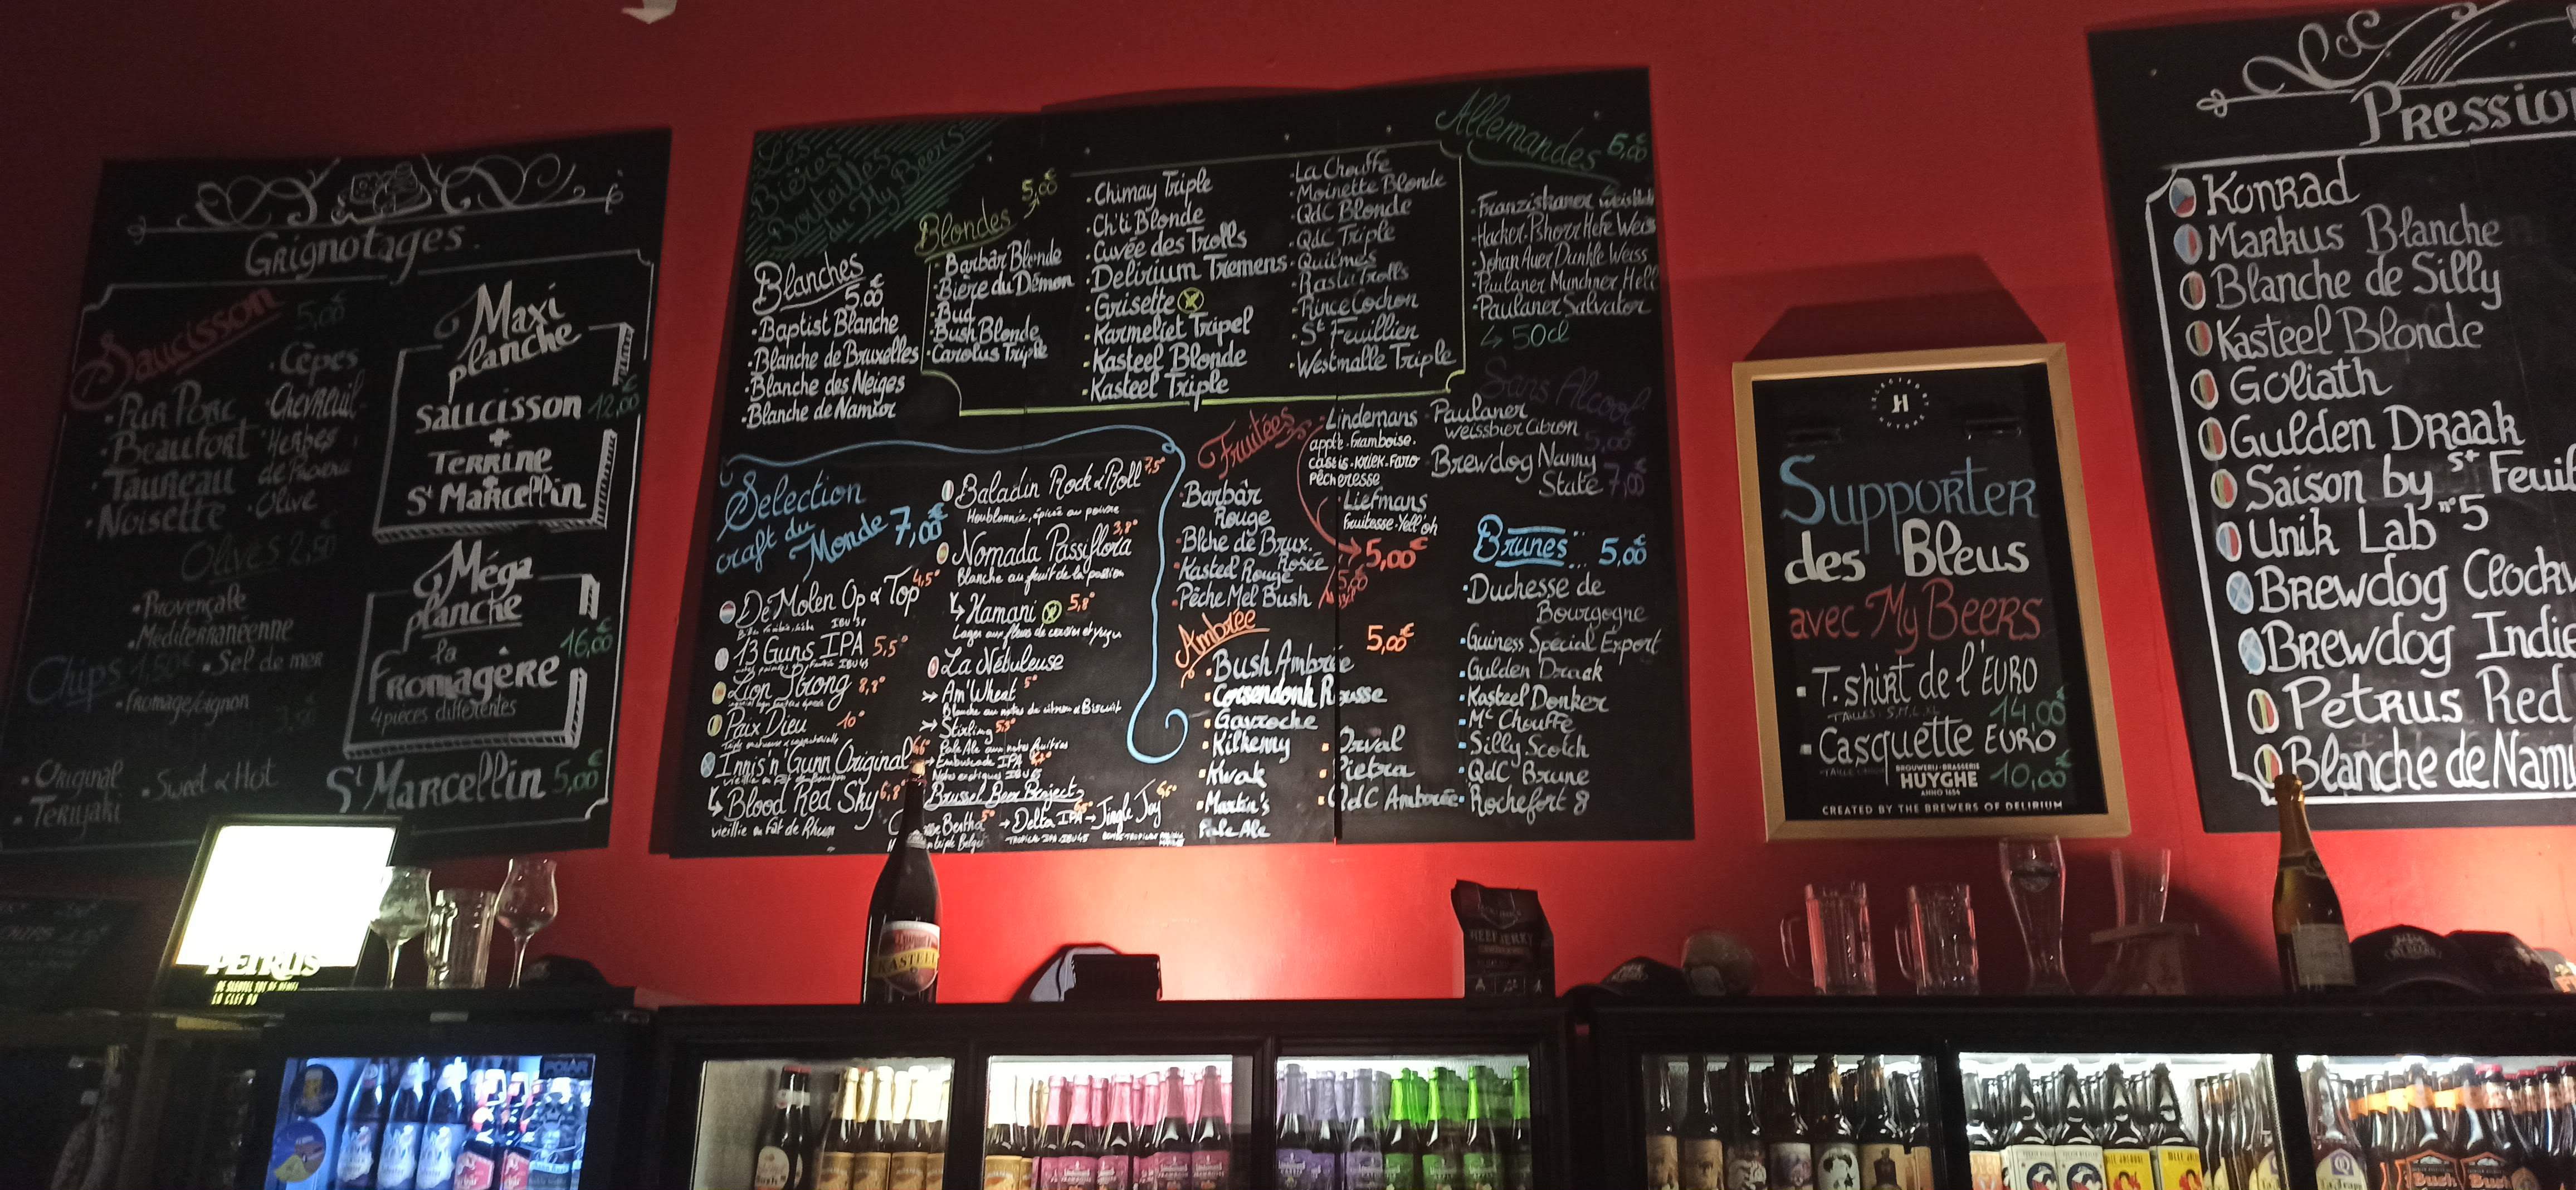 Grignotages
Saucisson 5,00€
Pur Porc
Beaufort
Taureau
Noisette
Cèpes
Chevreuil
Herbes
de Provence
Olive
Olives 2,50
Provençale
Mediterranéenne
Chips 1,50€
Sel de mer
Fromage/oignon
Original
Teriyaki
Sweet & Hot
Maxi
planche
12,00€
saucisson
+
Terrine
+
St Marcellin
Méga
planche
16,00€
la
Fromagère
4 pièces différentes
St Marcellin 5,00€
Les
Bières
Bouteilles
du My Beers
Blanches
5.00€
Baptist Blanche
Blanche de Bruxelles
Blanche des Neiges
Blanche de Namur
Blondes 5,00€
Barbâr Blonde
Bière du Démon
Bud
Bush Blonde
Carolus Triple
Chimay Triple
Ch'ti Blonde
Cuvée des Trolls
Delirium Tremens
Grisette
Karmeliet Tripel
Kasteel Blonde
Kasteel Triple
La Chouffe
Moinette Blonde
QdC Blonde
QdC Triple
Quilmes
Rasta Trolls
Rince Cochon
St Feuillien
Westmalle Triple
Allemandes 6,00€
Franziskaner
Hacker-Pshorr Hefe Weis
Johan Auer Dunkle Weiss
Paulaner Munchner Hell
Paulaner Salvator
↳ 50cl
Sans Alcool
Paulaner
weissbier Citron 5,00
Brewdog Nanny
State 7,00
Selection
craft du
Monde 7,00€
De Molen Op & Top 4,5°
13 Guns IPA 5,5°
Lion Strong 8,8°
Paix Dieu 10°
Innis'n'Gunn Original 6,6°
↳ Blood Red Sky 6,8°
vieillie en Fût de Rhum
Baladin Rock & Roll 7,5°
Houblonnée, épicée au poivre
Nomada Passiflora 3,8°
Blanche au fruit de la passion
↳ Hamani 5,8°
La Nébuleuse
Am'Wheat 5°
Blanche au notes de citron & Biscuit
Stirling 5,5°
Pale Ale aux notes fruitées
Embuscade IPA
Notes exotiques IBU 65
Brussel Beer Project
Bertha
→ Delta IPA
→ Jingle Joy
Fruitées
Barbâr
Rouge
Blche de Brux.
Rosée
Kasteel Rouge
Pêche Mel Bush
Lindemans
apple. framboise.
cassis. kriek. Faro
pêcheresse
Liefmans
Fruitesse. Yell'oh
5,00€
Ambrée 5,00€
Bush Ambrée
Corsendonk Rousse
Gavroche
Kilkenny
Kwak
Martin's
Pale Ale
Orval
Pietra
QdC Ambrée
Brunes 5,00€
Duchesse de
Bourgogne
Guiness Spécial Export
Gulden Draak
Kasteel Donker
Mc Chouffe
Silly Scotch
QdC Brune
Rochefort 8
Supporter
des Bleus
avec My Beers
T.shirt de l'EURO
TAILLES: S,M,L,XL 14,00€
Casquette EURO
10,00€
BROUWERIJ-BRASSERIE
HUYGHE
ANNO 1654
CREATED BY THE BREWERS OF DELIRIUM
Pression
Konrad
Markus Blanche
Blanche de Silly
Kasteel Blonde
Goliath
Gulden Draak
Saison by St Feuil
Unik Lab n°5
Brewdog Clockw
Brewdog Indie
Petrus Red
Blanche de Namu
PETRUS
KASTEEL
BEEF JERKY
POLAR